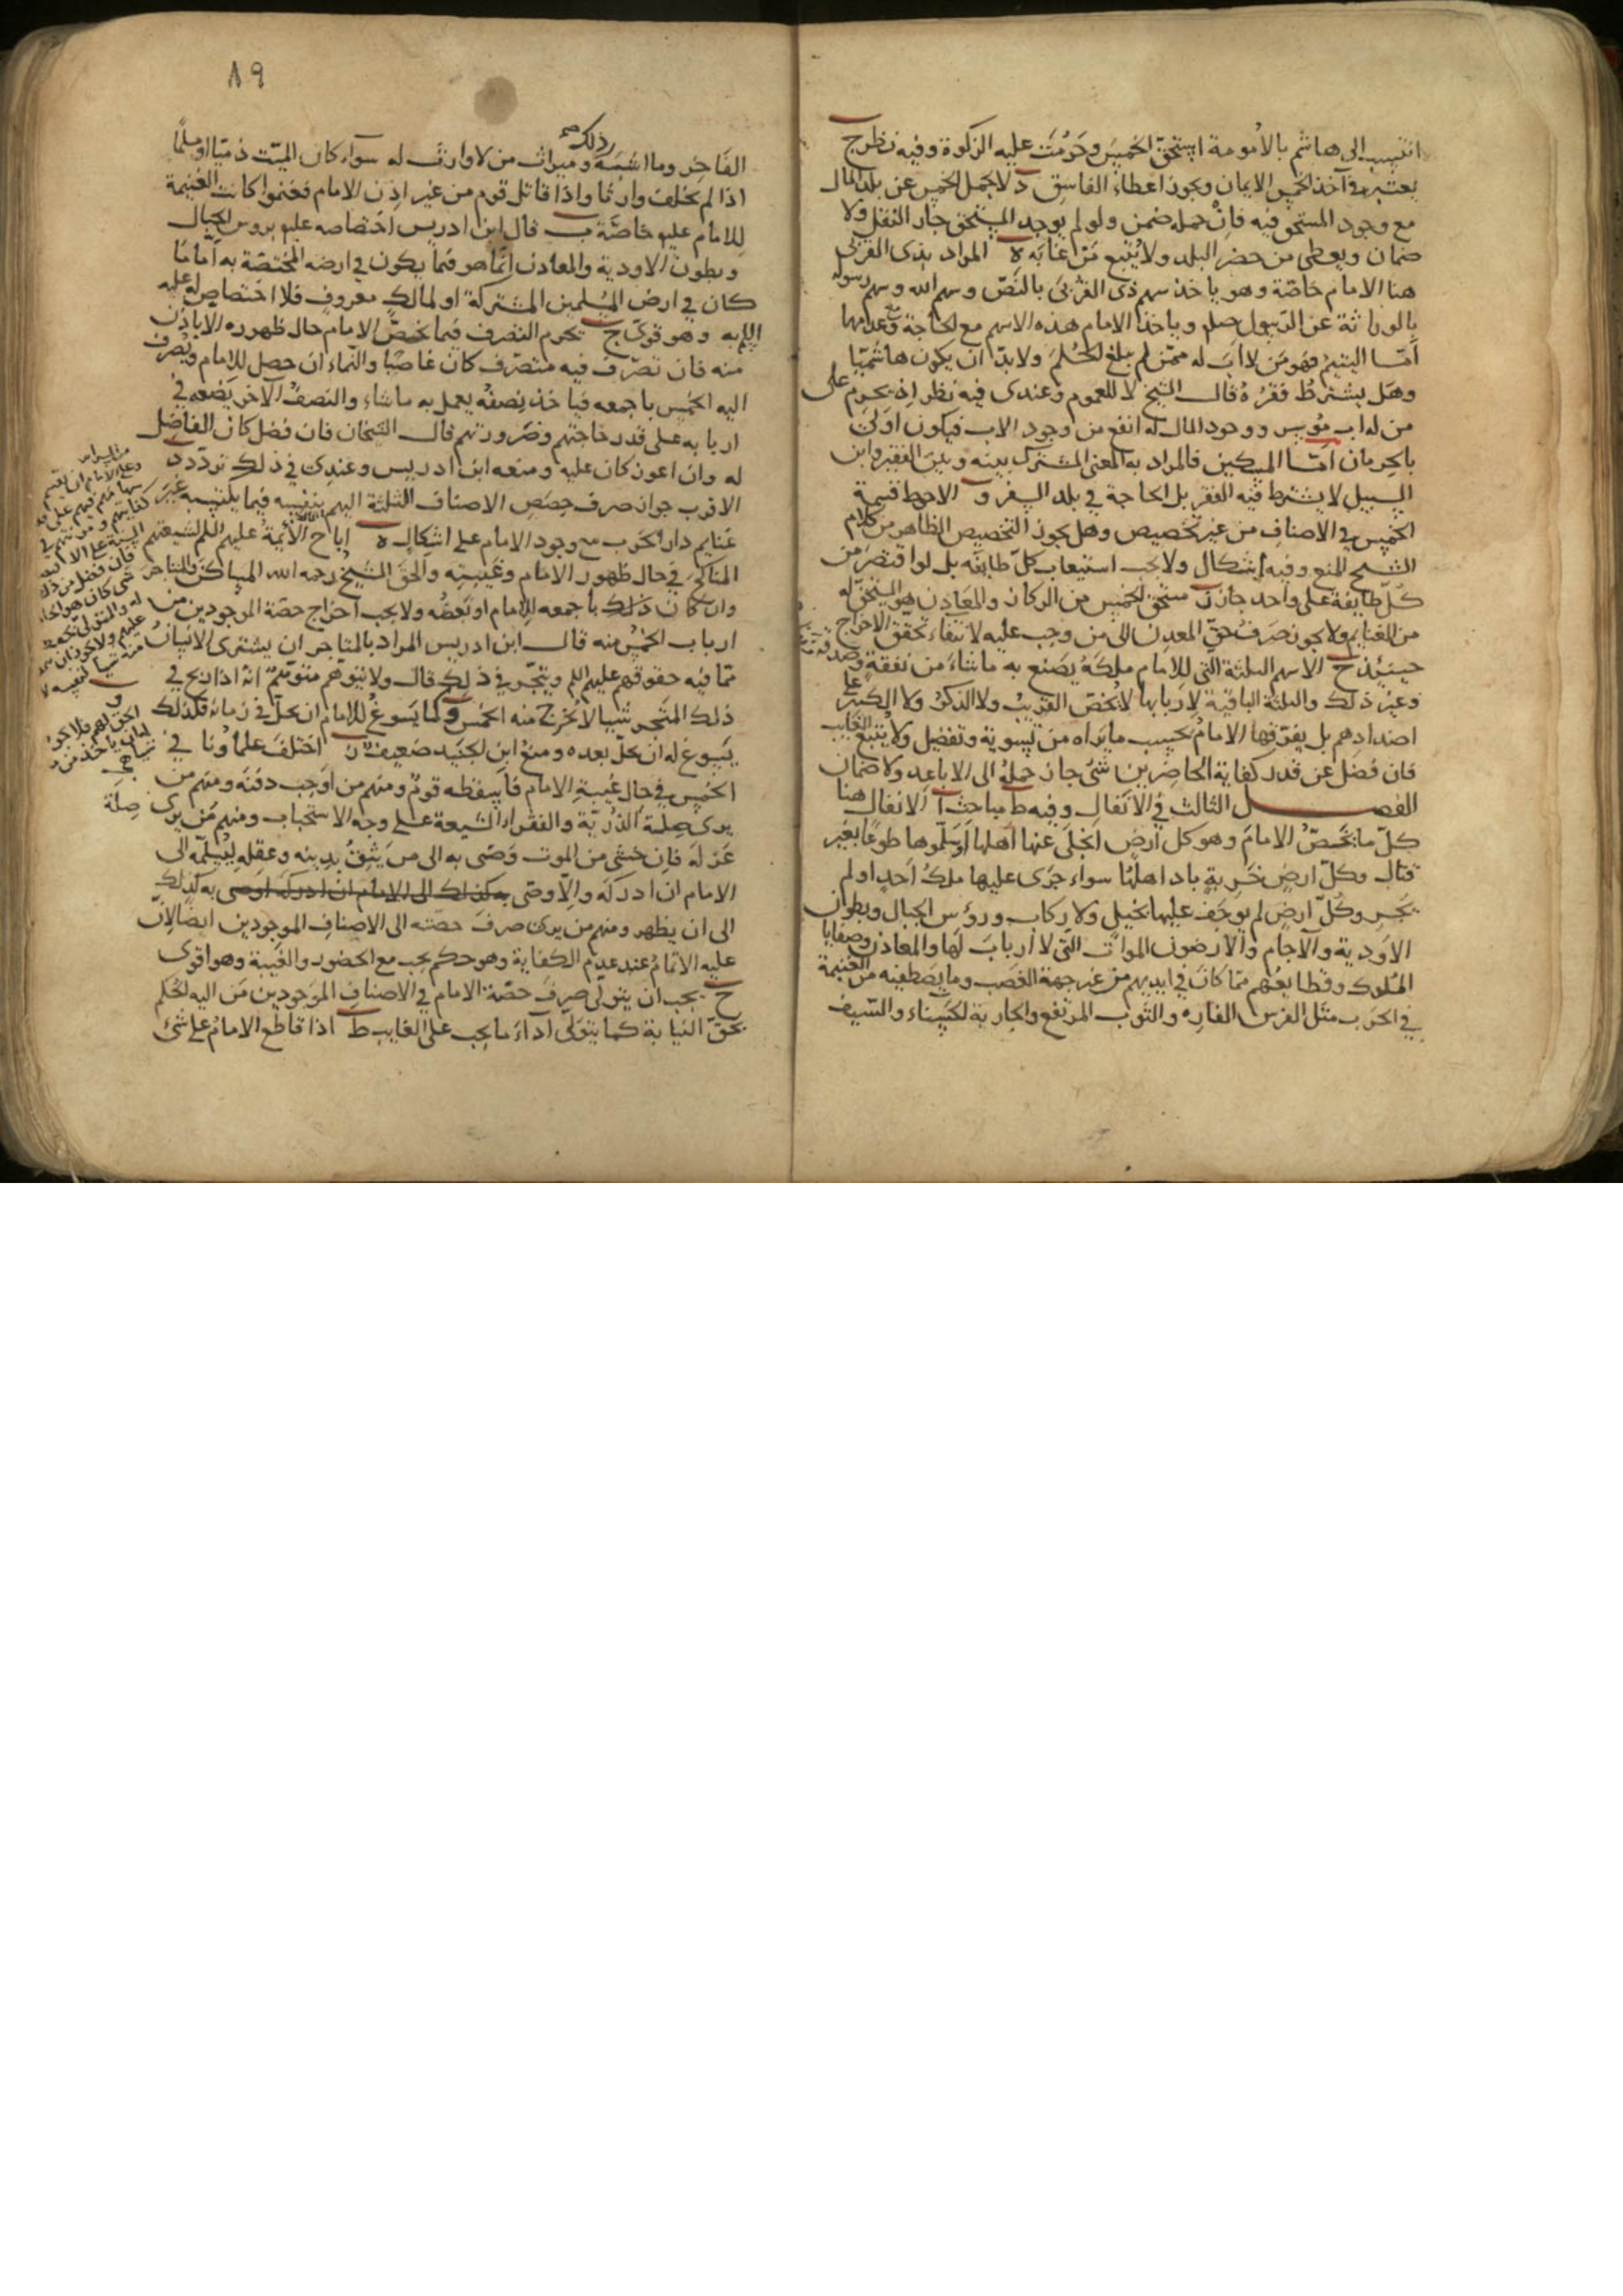 انتسب الى هاشم بالأمومة استحق الخمس وحرمت عليه الزكوة وفيه نظر ج
يعتبر في آخذ الخمس الايمان ويجوز اعطاء الفاسق د لا يحمل الخمس عن بلد المال
مع وجود المستحق فيه فان حمله ضمن ولو لم يوجد المستحق جاز النقل ولا
ضمان ويعطى من حضر البلد ولا يتبع من غاب ه المراد بذى القربى
هنا الامام خاصة وهو ياخذ سهم ذى القربى بالنص وسهم الله وسهم رسوله
بالوراثة عن الرسول صلم وياخذ الامام هذه الاسهم مع الحاجة وعدمها
امّا اليتيم فهو من لا اب له ممن لم يبلغ الحلم ولا بدّ ان يكون هاشميّا
وهل يشترط فقره قال الشيخ لا للعموم وعندى فيه نظر اذ يحرم على
من له اب موسر ووجود المال له انفع من وجود الاب فيكون اولى
بالحرمان امّا المسكين فالمراد به المعنى المشترك بينه وبين الفقير وابن
السبيل لا يشترط فيه الفقر بل الحاجة في بلد السفر و الاحوط قسمة
الخمس في الاصناف من غير تخصيص وهل يجوز التخصيص الظاهر من كلام
الشيخ المنع وفيه اشكال ولا يجب استيعاب كلّ طايفة بل لو اقتصر من
كلّ طايفة على واحد جاز ز مستحق الخمس من الركاز والمعادن هو المستحق له
من الغنايم ولا يجوز صرف حق المعدن الى من وجب عليه لانتفاء تحقق الاخراج
حينئذ ح الاسهم الثلثة التي للامام ملكه يصنع به ما شاء من نفقة وصدقة
وغير ذلك والثلثة الباقية لاربابها لا يخص القريب ولا الذكر ولا الكبير على
اضدادهم بل يفرقها الامام بحسب ما يراه من تسوية وتفضيل ولا يتبع الغايب
فان فضل عن قدر كفاية الحاضرين شئ جاز حمله الى الاباعد ولا ضمان
الفصل الثالث في الانفال وفيه ط مباحث ا الانفال هنا
كلّ ما يخصّ الامام وهو كل ارض انجلى عنها اهلها او سلّموها طوعا بغير
قتال وكلّ ارض خربة باد اهلها سواء جرى عليها ملك احد او لم
يجر وكلّ ارض لم يوجف عليها بخيل ولا ركاب ورؤس الجبال وبطون
الاودية والآجام والارضون الموات التي لا ارباب لها والمعادن وصفايا
الملوك وقطايعهم ممّا كان في ايديهم من غير جهة الغصب وما يصطفيه من الغنيمة
في الحرب مثل الفرس الفاره والثوب المرتفع والجارية الحسناء والسّيف
٨٩
الفاخر وما اشبه ذلك وميراث من لا وارث له سواء كان الميّت ذميّا او مسلمًا
اذا لم يخلف وارثا واذا قاتل قوم من غير اذن الامام فغنموا كانت الغنيمة
للامام عليه خاصّة ب قال ابن ادريس اختصاصه عليه بروس الجبال
وبطون الاودية والمعادن انّما هو فيما يكون في ارضه المختصّة به امّا ما
كان في ارض المسلمين المشتركة او لمالك معروف فلا اختصاص له عليه
السلم به وهو قوىّ ج يحرم التصرف فيما يخصّ الامام حال ظهوره الا باذن
منه فان تصرّف فيه متصرّف كان غاصبا والنماء ان حصل للامام ويصرف
اليه الخمس باجمعه فياخذ نصفه يعمل به ما شاء والنصف الآخر يضعه في
اربابه على قدر حاجتهم وضرورتهم قال الشيخان فان فضل كان الفاضل
له وان اعوز كان عليه ومنعه ابن ادريس وعندى في ذلك تردّد د
الاقرب جواز صرف حصص الاصناف الثلثة اليهم بنفسه فيما يكتسبه غير
غنايم دار الحرب مع وجود الامام على اشكال ه اباح الائمة عليهم السلم لشيعتهم
المناكح في حال ظهور الامام وغيبته والحق الشيخ رحمه الله المساكن والمتاجر
وان كان ذلك باجمعه للامام او بعضه ولا يجب اخراج حصّة الموجودين من
ارباب الخمس منه قال ابن ادريس المراد بالمتاجر ان يشترى الانسان
ممّا فيه حقوقهم عليهم السلم ويتّجر في ذلك قال ولا يتوهّم متوهّم انّه اذا ربح في
ذلك المتّجر شيئا لا يخرج منه الخمس و كما يسوغ للامام ان يحلّ في زمانه فكذلك
يسوغ له ان يحلّ بعده ومنع ابن الجنيد ضعيف ز اختلف علماؤنا في
الخمس في حال غيبة الامام فاسقطه قوم ومنهم من اوجب دفنه ومنهم من
يرى صلة الذّريّة والفقراء الشيعة على وجه الاستحباب ومنهم من يرى صلة
عزله فان خشى من الموت وصّى به الى من يثق بدينه وعقله ليسلّمه الى
الامام ان ادركه والّا وصّى به كذلك الى الامام ان ادركه اوصى به كذلك
الى ان يظهر ومنهم من يرى صرف حصّته الى الاصناف الموجودين ايضا لانّ
عليه الاتمام عند عدم الكفاية وهو حكم يجب مع الحضور والغيبة وهو اقوى
ح يجب ان يتولّى صرف حصّة الامام في الاصناف الموجودين من اليه الحكم
بحقّ النيابة كما يتولّى اداء ما يجب على الغايب ط اذا قاطع الامام على شئ